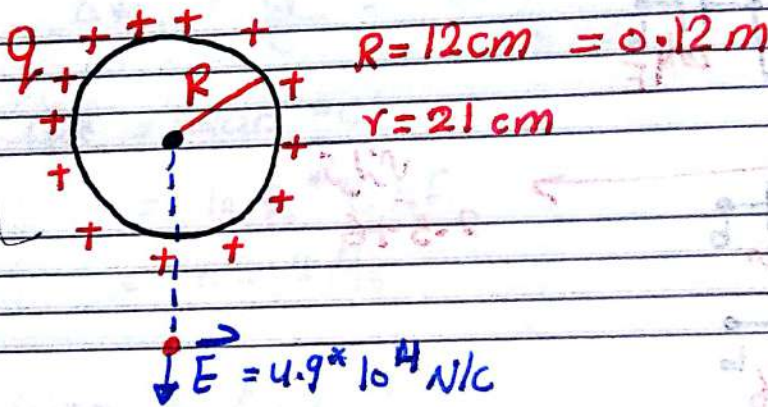 q
R
R = 12cm = 0.12 m
r = 21 cm
E = 4.9* 10^4 N/C